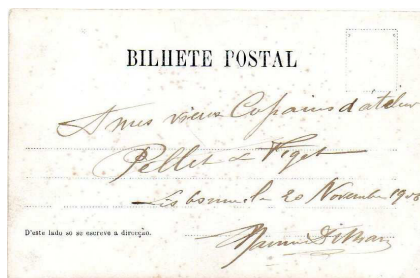 BILHETE POSTAL
A mes vieux Copains d'atelier
Pellet & Piget
Lisbonne le 20 Novembre
D'este lado so se escreve a direcção.